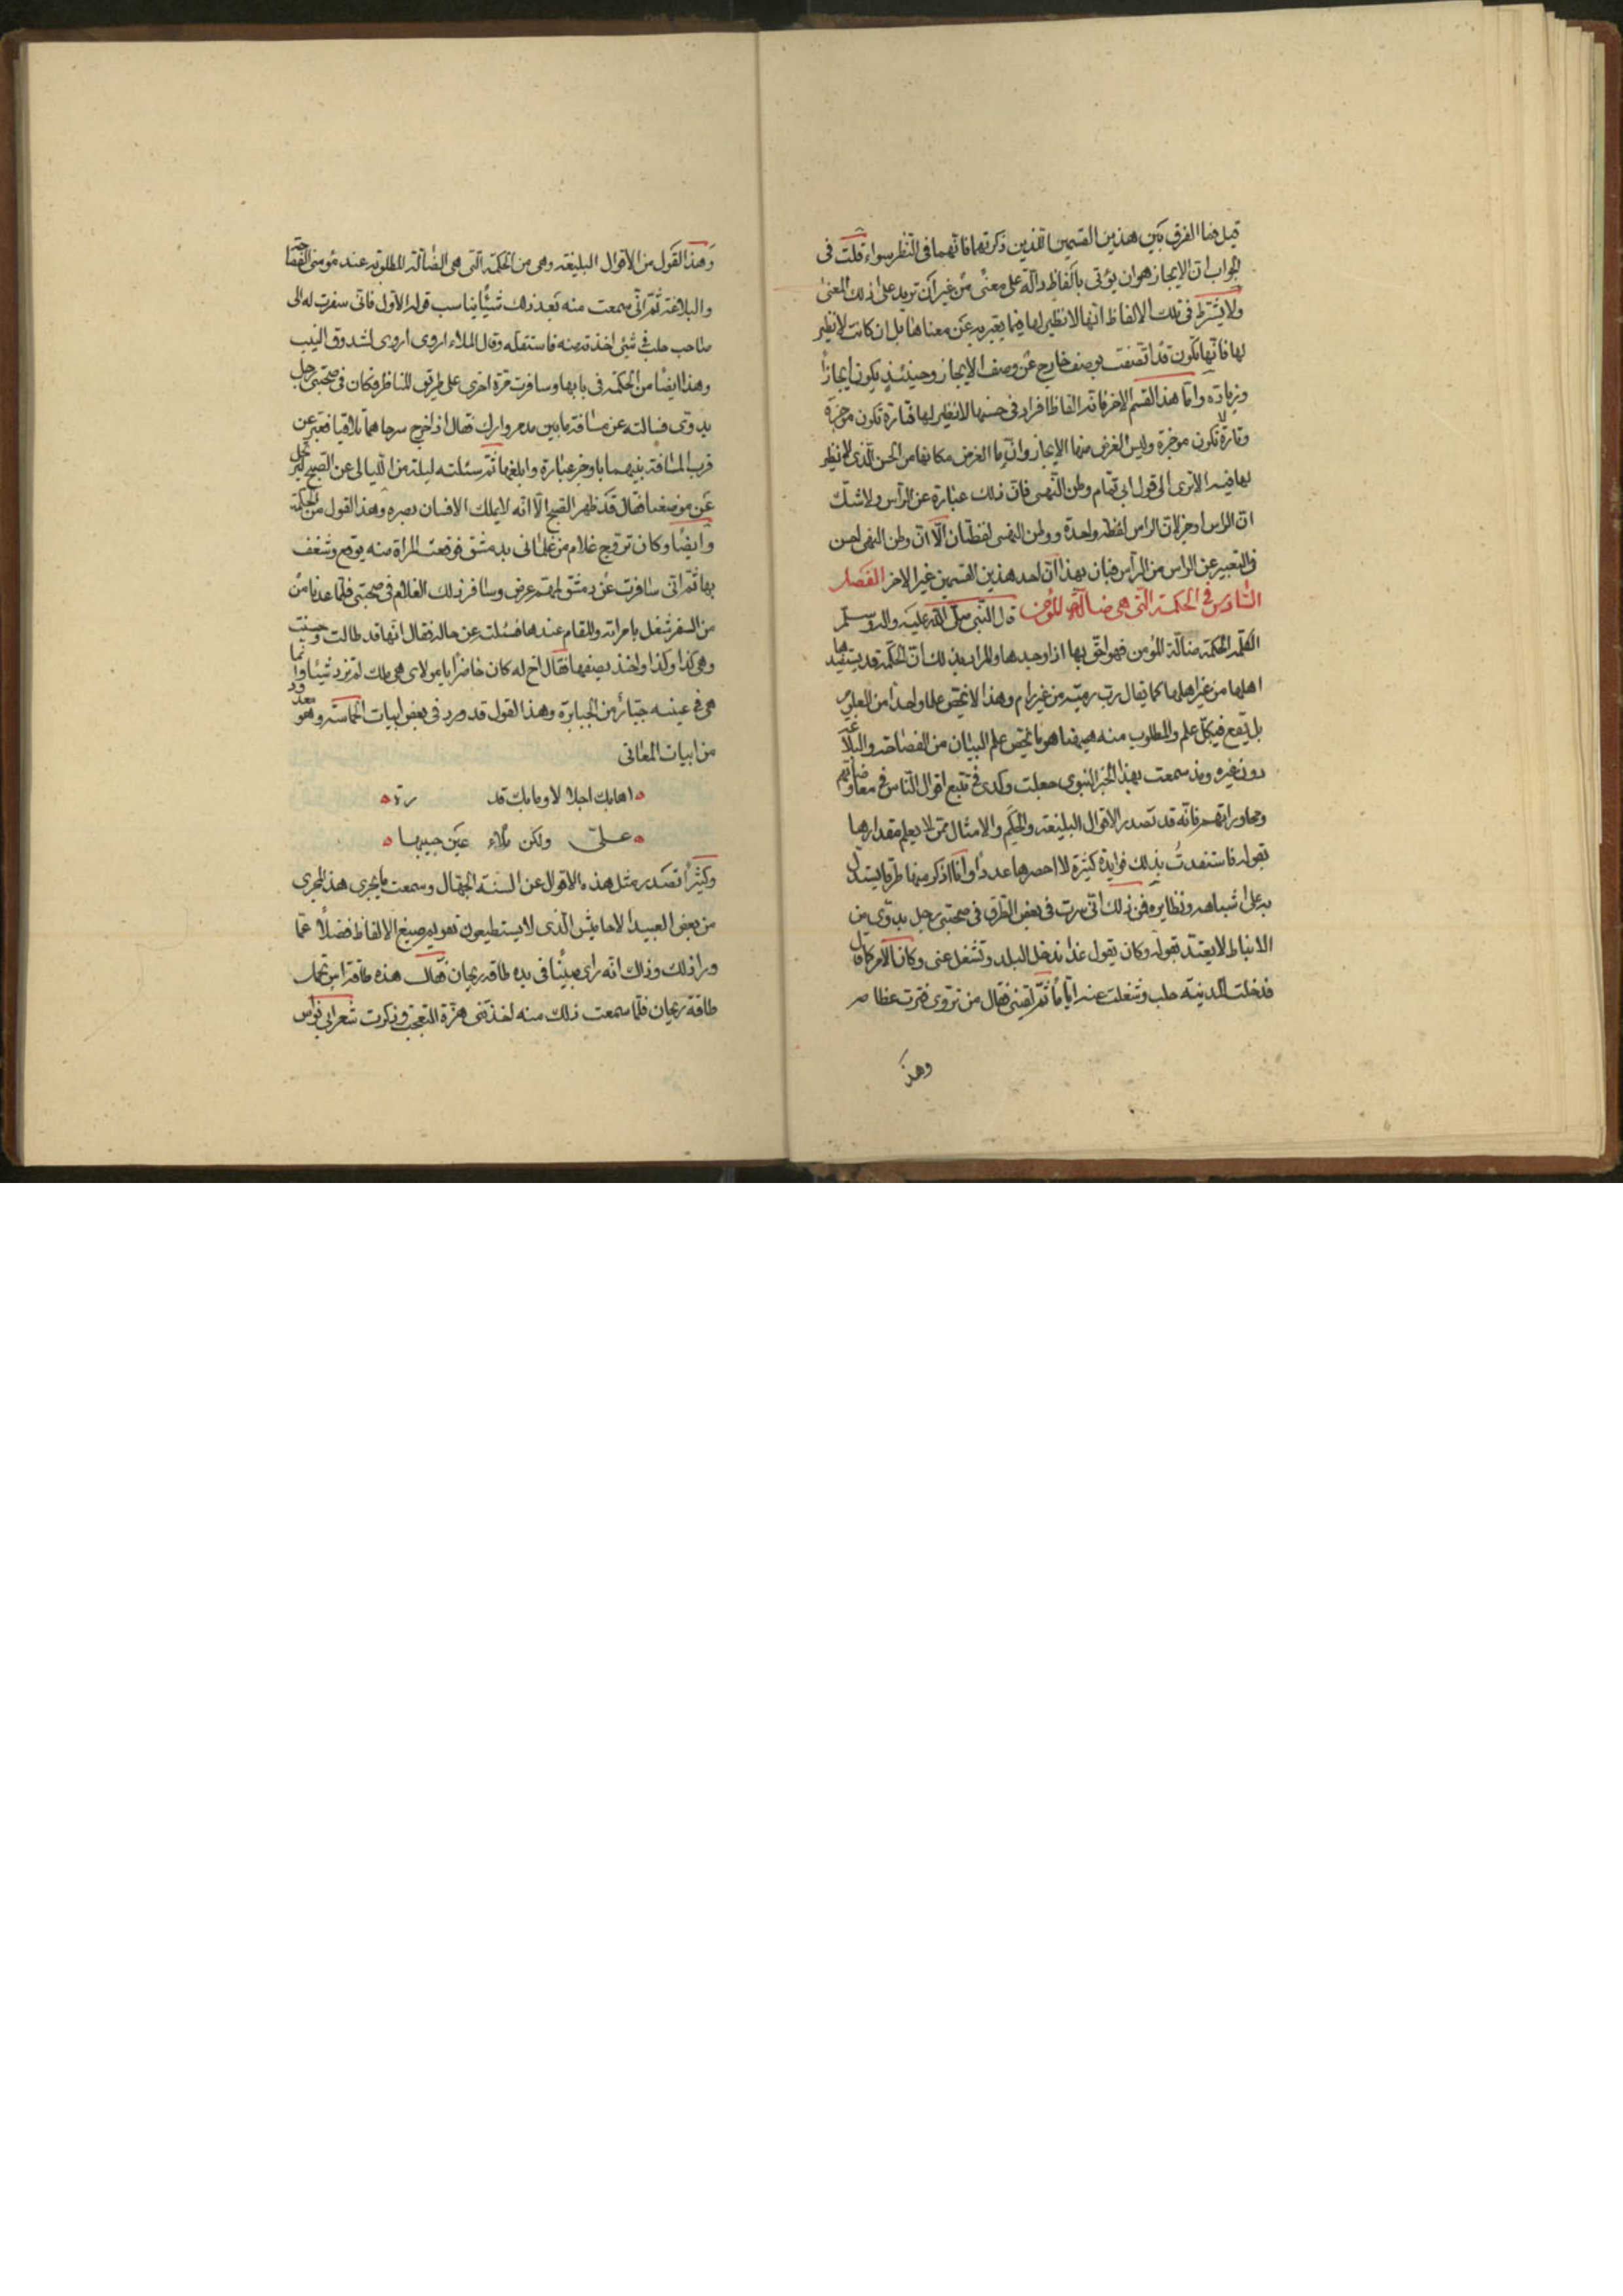 قيل فما الفرق بين هذين القسمين اللذين ذكرتهما فانهما فى النظر سواء قلت فى
الجواب ان الايجاز هو ان يؤتى بالفاظ دالة على معنى من غير ان تزيد على ذلك المعنى
ولا يشترط فى تلك الالفاظ انها لا نظير لها فيما يعبر به عن معناها بل ان كانت لا نظير
لها فانها تكون قد اتصفت بوصف خارج عن وصف الايجاز وحينئذ يكون ايجازا
وزيادة واما هذا القسم الاخر فانه الفاظ افراد فى حسنها لا نظير لها فتارة تكون موجزة
وتارة لا تكون موجزة وليس الغرض منها الايجاز وانما الغرض مكانها من الحسن الذى لا نظير
لها فيه الا ترى الى قول ابى تمام وطن النهى فان ذلك عبارة عن الرأس ولا شك
ان الراس اوجز لان الراس لفظة واحدة ووطن النهى لفظتان الا ان وطن النهى احسن
فى التعبير عن الراس من الرأس فبان بهذا ان احد هذين القسمين غير الاخر الفصل
السادس فى الحكمة التى هى ضالة المؤمن قال النبى صلى الله عليه واله وسلم
الكلمة الحكمة ضالة المؤمن فهو احق بها اذا وجدها والمراد بذلك ان الحكمة قد يستفيدها
اهلها من غير اهلها كما يقال رب رمية من غير رام وهذا لا يختص علما واحدا من العلوم
بل يقع فى كل علم والمطلوب منه ههنا هو ما يختص علم البيان من الفصاحة والبلاغة
دون غيره ومذ سمعت بهذا الخبر النبوى جعلت وكدى فى تتبع اقوال الناس فى مفاوضاتهم
ومحاوراتهم فانه قد تصدر الاقوال البليغة والحكم والامثال ممن لا يعلم مقدار ما
يقوله فاستفدت بذلك فوايد كثيرة لا احصرها عددا وانا اذكر منها طرفا يستدل
به على اشباهه ونظايره فمن ذلك انى سرت فى بعض الطرق فى صحبتى رجل بدوى من
الانباط لا يعتد بقوله وكان يقول غدا ندخل البلد وتشغل عنى وكان الامر كما قال
فدخلت المدينة حلب وشغلت عنه اياما ثم لقينى فقال من تروى فترت عظامه
وهذ
وهذا القول من الاقوال البليغة وهى من الحكمة التى هى الضالة المطلوبة عند مؤمنى الفصاحة
والبلاغة ثم انى سمعت منه بعد ذلك شيئا يناسب قوله الاول فانى سفرت له الى
صاحب حلب فى شئ اخذته منه فاستقله وقال الملاء اروى اروى لشدوق النيب
وهذا ايضا من الحكمة فى بابها وسافرت مرة اخرى على طريق المناظر وكان فى صحبتى رجل
بدوى فسالته عن مسافة ما بين تدمر وارك فقال اذا خرج سرحاهما تلاقيا فعبر عن
قرب المسافة بينهما باوجز عبارة وابلغها ثم سئلته ليلة من الليالى عن الصبح لنرتحل
عن موضعنا فقال قد ظهر الصبح الا انه لا يملك الانسان بصره وهذا القول من الحكمة
وايضا وكان تزوج غلام من غلمانى بدمشق فوقعت المراة منه بوقع وشغف
بها ثم انى سافرت عن دمشق لمهم عرض وسافر ذلك الغلام فى صحبتى فلما عدنا من
من السفر شغل بامراته والمقام عندها فسئلت عن حاله فقال انها قد طالت وحسنت
وهى كذا وكذا واخذ يصفها فقال اخ له كان حاضرا يا مولاى هى تلك لم تزد شيئا وانما
هى فى عينه جبار من الجبابرة وهذا القول قد ورد فى بعض ابيات الحماسة وهو معدود
من ابيات المعانى
اهابك اجلالا وما بك قدرة
على ولكن ملاء عين حبيبها
وكثيرا تصدر مثل هذه الاقوال عن السنة الجهال وسمعت ما يجرى هذا المجرى
من بعض العبيد الاحابيش الذى لا يستطيعون تقويم صيغ الالفاظ فضلا عما
وراء ذلك وذاك انه راى صبيا فى يده طاقة ريحان فقال هذه طاقة اس تحمل
طاقة ريحان فلما سمعت ذلك منه اخذتنى هزة التعجب وذكرت شعر ابى نواس